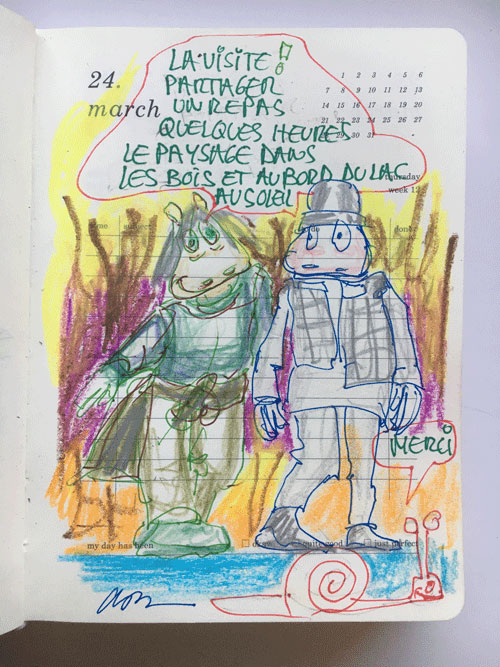 LA VISITE!
PARTAGER
UN REPAS
QUELQUES HEURES
LE PAYSAGE DANS
LES BOIS ET AU BORD DU LAC
AU SOLEIL
24.
march
1 2 3 4 5 6
7 8 9 10 11 12 13
14 15 16 17 18 19 20
21 22 23 24 25 26 27
29 30 31
thursday
week 12
done
MERCI
my day has been quite good just perfect